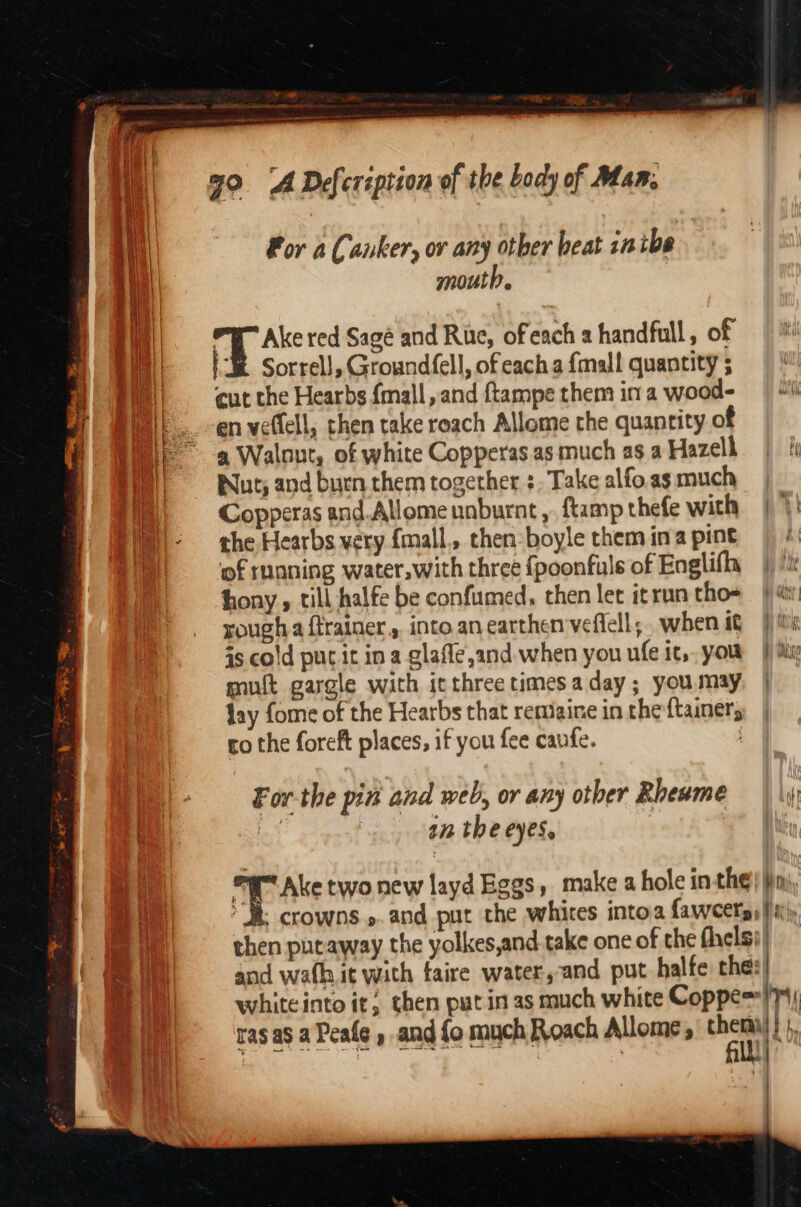 90 A Deſcription of the body of Man,
For a Canker, or any other heat in the
mouth.
TAke red Sage and Rue, of each a handfull, of
Sorrell, Groundſell, of each a ſmall quantity ;
cut the Hearbs ſmall, and ſtampe them in a wood-
en veſſell, then take roach Allome the quantity of
a Walnut, of white Copperas as much as a Hazell
Nut, and burn them together : Take alſo as much
Copperas and Allome unburnt, ſtamp theſe with
the Hearbs very ſmall, then boyle them in a pint
of running water, with three ſpoonfuls of Engliſh
hony, till halfe be conſumed, then let it run tho-
rough a ſtrainer, into an earthen veſſell; when it
is cold put it in a glaſſe, and when you uſe it, you
muſt gargle with it three times a day ; you may
lay ſome of the Hearbs that remaine in the ſtainer,
to the foreſt places, if you ſee cauſe.
For the pin and web, or any other Rheume
in the eyes.
TAke two new layd Eggs, make a hole in the
crowns, and put the whites into a ſawcer,
then put away the yolkes, and take one of the ſhels
and waſh it with faire water, and put halfe the
white into it, then put in as much white Coppe-
ras as a Peaſe, and ſo much Roach Allome, then
fill